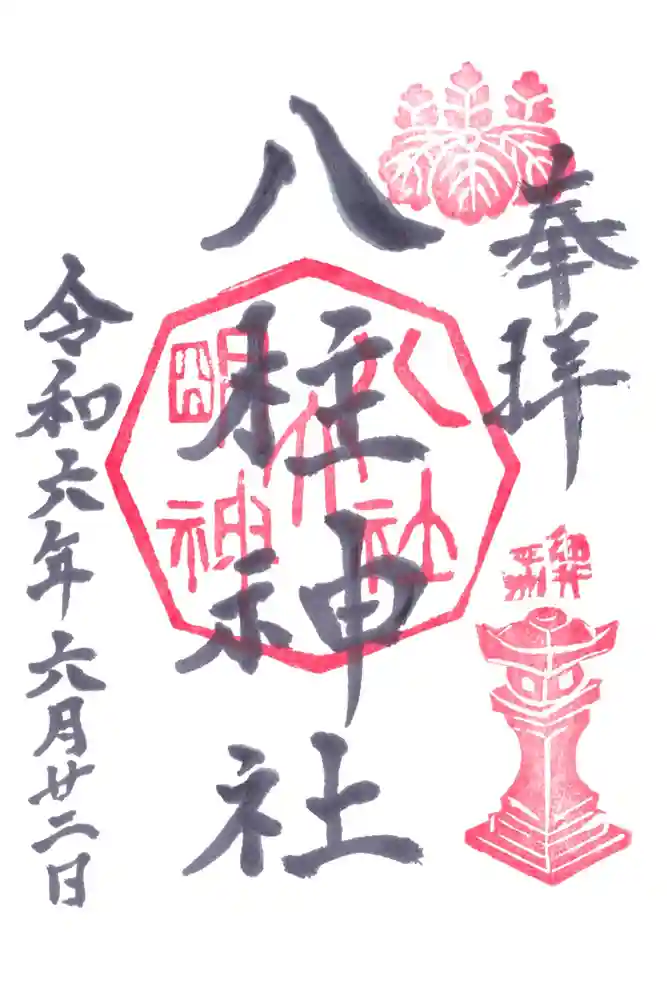 奉拝
八柱神社
令和六年六月廿二日
八
社
明神